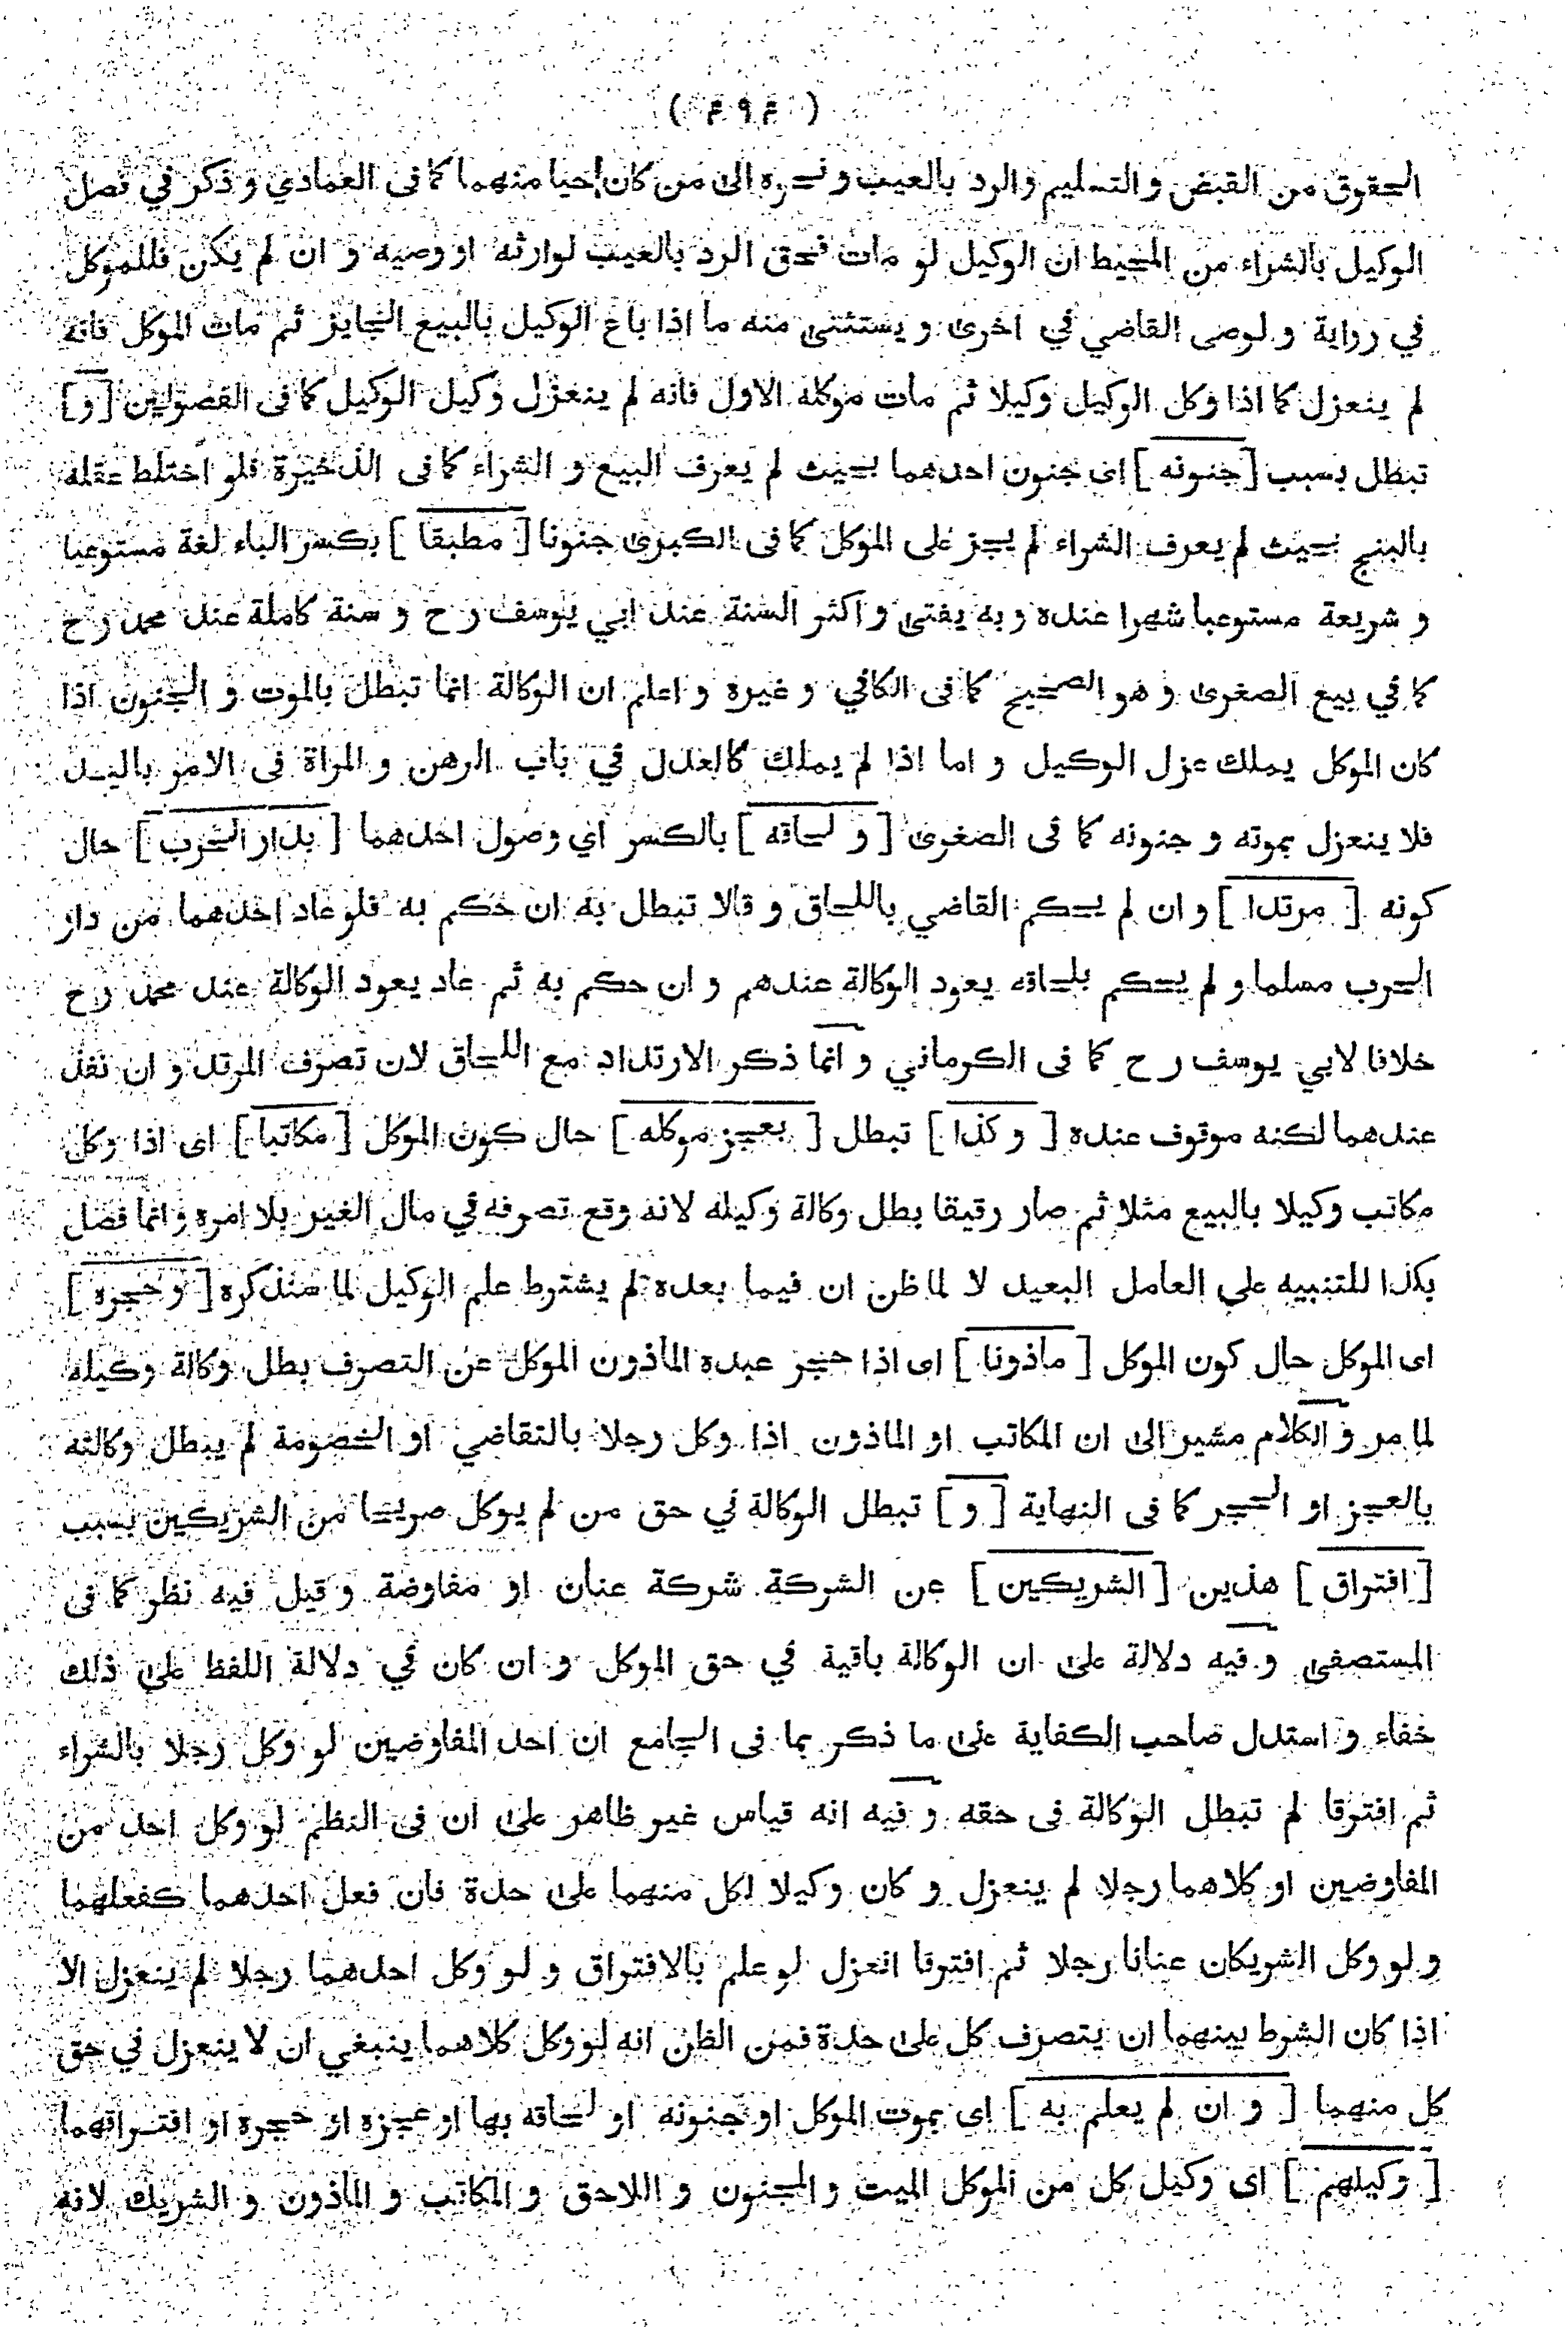 ( ۴۹۴ )
الحقوق من القبض و التسليم والرد بالعيب و نحوه الى من كان احيا منهما كما فى العمادي و ذكر في فصل
الوكيل بالشراء من المحيط ان الوكيل لو مات فحق الرد بالعيب لوارثه او وصيه و ان لم يكن فللموكل
في رواية و لوصى القاضي في اخرى و يستثنى منه ما اذا باع الوكيل بالبيع الجايز ثم مات الموكل فانه
لم ينعزل كما اذا وكل الوكيل وكيلا ثم مات موكله الاول فانه لم ينعزل وكيل الوكيل كما فى الفصولين [ و ]
تبطل بسبب [ جنونه ] اى جنون احدهما بحيث لم يعرف البيع و الشراء كما فى الذخيرة فلو اختلط عقله
بالبنج بحيث لم يعرف الشراء لم يجز على الموكل كما فى الكبرى جنونا [ مطبقا ] بكسر الباء لغة مستوعبا
و شريعة مستوعبا شهرا عنده و به يفتى و اكثر السنة عند ابي يوسف رح و سنة كاملة عند محمد رح
كما في بيع الصغرى و هو الصحيح كما فى الكافي و غيره و اعلم ان الوكالة انما تبطل بالموت و الجنون اذا
كان الموكل يملك عزل الوكيل و اما اذا لم يملك كالعدل في باب الرهن و المراة فى الامر باليد
فلا ينعزل بموته و جنونه كما فى الصغرى [ و لحاقه ] بالكسر اي وصول احدهما [ بدار الحرب ] حال
كونه [ مرتدا ] و ان لم يحكم القاضي باللحاق و قالا تبطل به ان حكم به فلو عاد احدهما من دار
الحرب مسلما و لم يحكم بلحاقه يعود الوكالة عندهم و ان حكم به ثم عاد يعود الوكالة عند محمد رح
خلافا لابي يوسف رح كما فى الكرماني و انما ذكر الارتداد مع اللحاق لان تصرف المرتد و ان نفذ
عندهما لكنه موقوف عنده [ و كذا ] تبطل [ بعجز موكله ] حال كون الموكل [ مكاتبا ] اى اذا وكل
مكاتب وكيلا بالبيع مثلا ثم صار رقيقا بطل وكالة وكيله لانه وقع تصرفه في مال الغير بلا امره و انما فصل
بكذا للتنبيه على العامل البعيد لا لما ظن ان فيما بعده لم يشترط علم الوكيل لما سنذكره [ و حجره ]
اى الموكل حال كون الموكل [ ماذونا ] اى اذا حجر عبده الماذون الموكل عن التصرف بطل وكالة وكيله
لما مر و الكلام مشير الى ان المكاتب او الماذون اذا وكل رجلا بالتقاضي او الخصومة لم يبطل وكالته
بالعجز او الحجر كما فى النهاية [ و ] تبطل الوكالة في حق من لم يوكل صريحا من الشريكين بسبب
[ افتراق ] هذين [ الشريكين ] عن الشركة شركة عنان او مفاوضة و قيل فيه نظر كما فى
المستصفى و فيه دلالة على ان الوكالة باقية في حق الموكل و ان كان في دلالة اللفظ على ذلك
خفاء و استدل صاحب الكفاية على ما ذكر بما فى الجامع ان احد المفاوضين لو وكل رجلا بالشراء
ثم افترقا لم تبطل الوكالة فى حقه و فيه انه قياس غير ظاهر على ان فى النظم لو وكل احد من
المفاوضين او كلاهما رجلا لم ينعزل و كان وكيلا لكل منهما على حدة فان فعل احدهما كفعلهما
و لو وكل الشريكان عنانا رجلا ثم افترقا انعزل لو علم بالافتراق و لو وكل احدهما رجلا لم ينعزل الا
اذا كان الشرط بينهما ان يتصرف كل على حدة فمن الظن انه لو وكل كلاهما ينبغي ان لا ينعزل في حق
كل منهما [ و ان لم يعلم به ] اى بموت الموكل او جنونه او لحاقه بها او عجزه او حجره او افتراقهما
[ وكيلهم ] اى وكيل كل من الموكل الميت و المجنون و اللاحق و المكاتب و الماذون و الشريك لانه